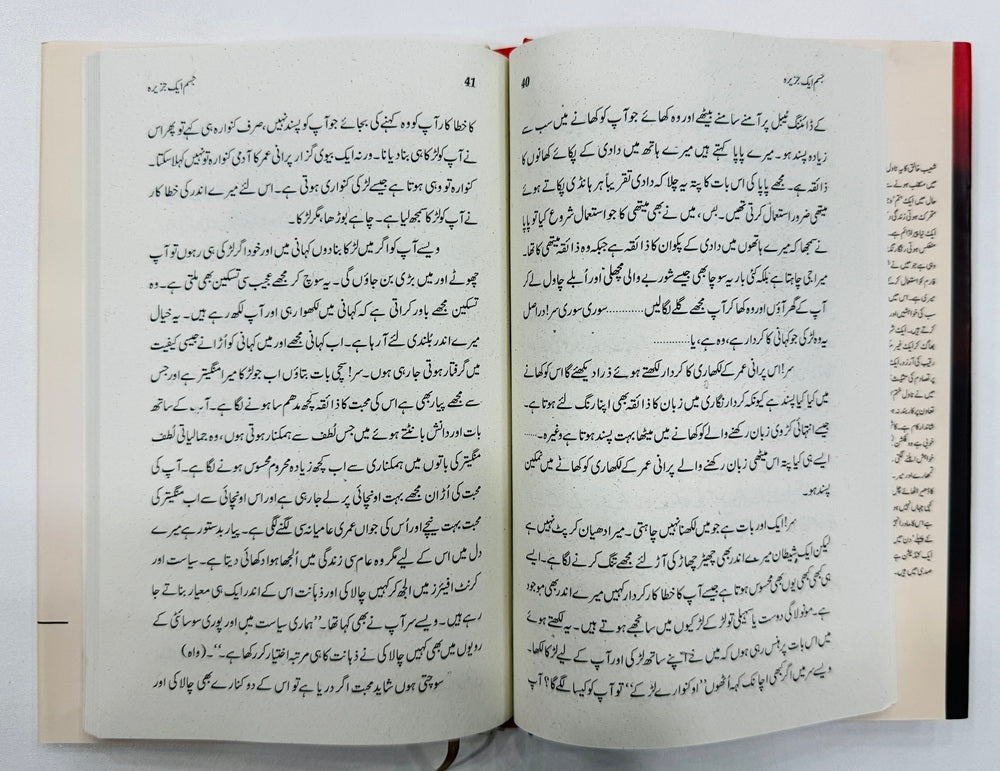 جسم ایک جزیرہ
40
کے ڈائننگ ٹیبل پر آمنے سامنے بیٹھے اور وہ کھائے جو آپ کو کھانے میں سب سے
زیادہ پسند ہو۔ میرے پاپا کہتے ہیں میرے ہاتھ میں دادی کے پکائے کھانوں کا
ذائقہ ہے۔ مجھے پاپا کی اس بات کا پتہ یہ چلا کہ دادی تقریباً ہر ہانڈی پکاتے ہوئے
میتھی ضرور استعمال کرتی تھیں۔ بس، میں نے بھی میتھی کا جو استعمال شروع کیا تو پاپا
نے سمجھا کہ میرے ہاتھوں میں دادی کے پکوان کا ذائقہ ہے جبکہ وہ ذائقہ میتھی کا تھا۔
میرا جی چاہتا ہے بلکہ کئی بار یہ سوچا بھی جیسے شوربے والی مچھلی اور اُبلے چاول لے کر
آپ کے گھر آؤں اور وہ کھا کر آپ مجھے گلے لگا لیں............سوری سوری سر! دراصل
یہ وہ لڑکی جو کہانی کا کردار ہے، وہ ہے، یا............
سر! اس پرانی عمر کے لکھاری کا کردار لکھتے ہوئے ذرا دیکھئے گا اس کو کھانے
میں کیا کیا پسند ہے کیونکہ کردار نگاری میں زبان کا ذائقہ بھی اپنا رنگ لئے ہوتا ہے۔
جیسے انتہائی کڑوی زبان رکھنے والے کو کھانے میں میٹھا بہت پسند ہوتا ہے وغیرہ۔......
ایسے ہی کیا پتہ اس میٹھی زبان رکھنے والے پرانی عمر کے لکھاری کو کھانے میں نمکین
پسند ہو۔
سر! ایک اور بات ہے جو میں لکھنا نہیں چاہتی۔ میرا دھیان کرپٹ نہیں ہے
لیکن ایک شیطان میرے اندر بھی چھیڑ چھاڑ کی آڑ لئے مجھے تنگ کرنے لگا ہے۔ ایسے
ہی کبھی کبھی یوں بھی محسوس ہوتا ہے جیسے آپ کا خطا کار کردار کہیں میرے اندر بھی موجود
ہے۔ مونولاگی دوست یا سہیلی تو لڑکے لڑکیوں میں سانجھے ہوتے ہیں۔ یہ لکھتے ہوئے
میں اس بات پر ہنس رہی ہوں کہ میں نے اپنے ساتھ لڑکی اور آپ کے لیے لڑکا لکھا۔
ویسے سر میں اگر کبھی اچانک کہہ اُٹھوں ’’او کنوارے لڑکے‘‘ تو آپ کو کیسا لگے گا؟ آپ
41
جسم ایک جزیرہ
کا خطا کار آپ کو وہ کہنے کی بجائے جو آپ کو پسند نہیں، صرف کنوارہ ہی کہے تو پھر اس
نے آپ کو لڑکا ہی بنا دیا نا۔ ورنہ ایک بیوی گزار پرانی عمر کا آدمی کنوارہ تو نہیں کہلا سکتا۔
کنوارہ تو وہی ہوتا ہے جیسے لڑکی کنواری ہوتی ہے۔ اس لئے میرے اندر کی خطا کار
نے آپ کو لڑکا سمجھ لیا ہے۔ چاہے بوڑھا، مگر لڑکا۔
ویسے آپ کو اگر میں لڑکا بنا دوں کہانی میں اور خود اگر لڑکی ہی رہوں تو آپ
چھوٹے اور میں بڑی بن جاؤں گی۔ یہ سوچ کر مجھے عجیب سی تسکین بھی ملتی ہے۔ وہ
تسکین مجھے باور کراتی ہے کہ کہانی میں لکھوا رہی اور آپ لکھ رہے ہیں۔ یہ خیال
میرے اندر بلندی لئے آ رہا ہے۔ اب کہانی مجھے اور میں کہانی کو اُڑانے جیسی کیفیت
میں گرفتار ہوتی جا رہی ہوں۔ سر! سچی بات بتاؤں اب جو لڑکا میرا منگیتر ہے اور جس
سے مجھے پیار بھی ہے اس کی محبت کا ذائقہ کچھ مدھم سا ہونے لگا ہے۔ آپ کے ساتھ
بات اور دانش بانٹتے ہوئے میں جس لُطف سے ہمکنار ہوتی ہوں، وہ جمالیاتی لُطف
منگیتر کی باتوں میں ہمکناری سے اب کچھ زیادہ محروم محسوس ہونے لگا ہے۔ آپ کی
محبت کی اُڑان مجھے بہت اونچائی پر لے جا رہی ہے اور اس اونچائی سے اب منگیتر کی
محبت بہت نیچے اور اُس کی جواں عمری عامیانہ سی لگنے لگی ہے۔ پیار بدستور ہے میرے
دل میں اس کے لیے مگر وہ عام سی زندگی میں اُلجھا ہوا دکھائی دیتا ہے۔ سیاست اور
کرنٹ افیئرز میں الجھ کر کہیں چالاکی اور ذہانت اس کے اندر ایک ہی معیار بناتے جا
رہے ہیں۔ ویسے سر آپ نے بھی کہا تھا۔ ’’ہماری سیاست میں اور پوری سوسائٹی کے
رویوں میں بھی کہیں چالاکی نے ذہانت کا ہی مرتبہ اختیار کر رکھا ہے۔‘‘۔ (واہ)
سوچتی ہوں شاید محبت اگر دریا ہے تو اس کے دو کنارے بھی چالاکی اور